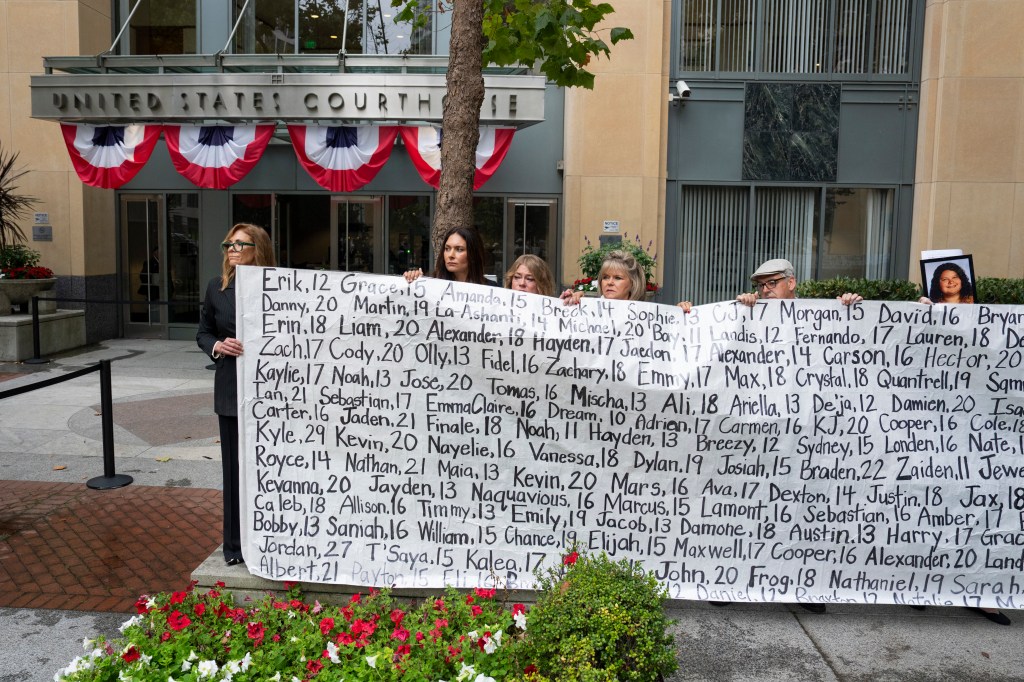 UNITED STATES COURTHOUSE
NOTICE
Erik, 12 Grace, 15 Amanda, 15 Breck, 14 Sophie, 13 CJ, 17 Morgan, 15 David, 16 Bryan
Danny, 20 Martin, 19 La-Ashanti, 14 Michael, 20 Bay, 11 Landis, 12 Fernando, 17 Lauren, 18
Erin, 18 Liam, 20 Alexander, 18 Hayden, 17 Jaedon, 17 Alexander, 14 Carson, 16 Hector, 20
Zach, 17 Cody, 20 Olly, 13 Fidel, 16 Zachary, 18 Emmy, 17 Max, 18 Crystal, 18 Quantrell, 19
Kaylie, 17 Noah, 13 Jose, 20 Tomas, 16 Mischa, 13 Ali, 18 Ariella, 13 De'ja, 12 Damien, 20
Ian, 21 Sebastian, 17 EmmaClaire, 16 Dream, 10 Adrian, 17 Carmen, 16 KJ, 20 Cooper, 16 Cole,
Carter, 16 Jaden, 21 Finale, 18 Noah, 11 Hayden, 13 Breezy, 12 Sydney, 15 London, 16 Nate,
Kyle, 29 Kevin, 20 Nayelie, 16 Vanessa, 18 Dylan, 19 Josiah, 15 Braden, 22 Zaiden, 11
Royce, 14 Nathan, 21 Maia, 13 Kevin, 20 Mars, 16 Ava, 17 Dexton, 14 Justin, 18 Jax, 18
Kevanna, 20 Jayden, 13 Naquavious, 16 Marcus, 15 Lamont, 16 Sebastian, 16 Amber, 17
Caleb, 18 Allison, 16 Timmy, 13 Emily, 19 Jacob, 13 Damone, 18 Austin, 13 Harry, 17
Bobby, 13 Saniah, 16 William, 15 Chance, 19 Elijah, 15 Maxwell, 17 Cooper, 16 Alexander, 20
Jordan, 27 T'Saya, 15 Kalea, 17 John, 20 Frog, 18 Nathaniel, 19 Sarah,
Albert, 21 Payton, 15 Eli, 16